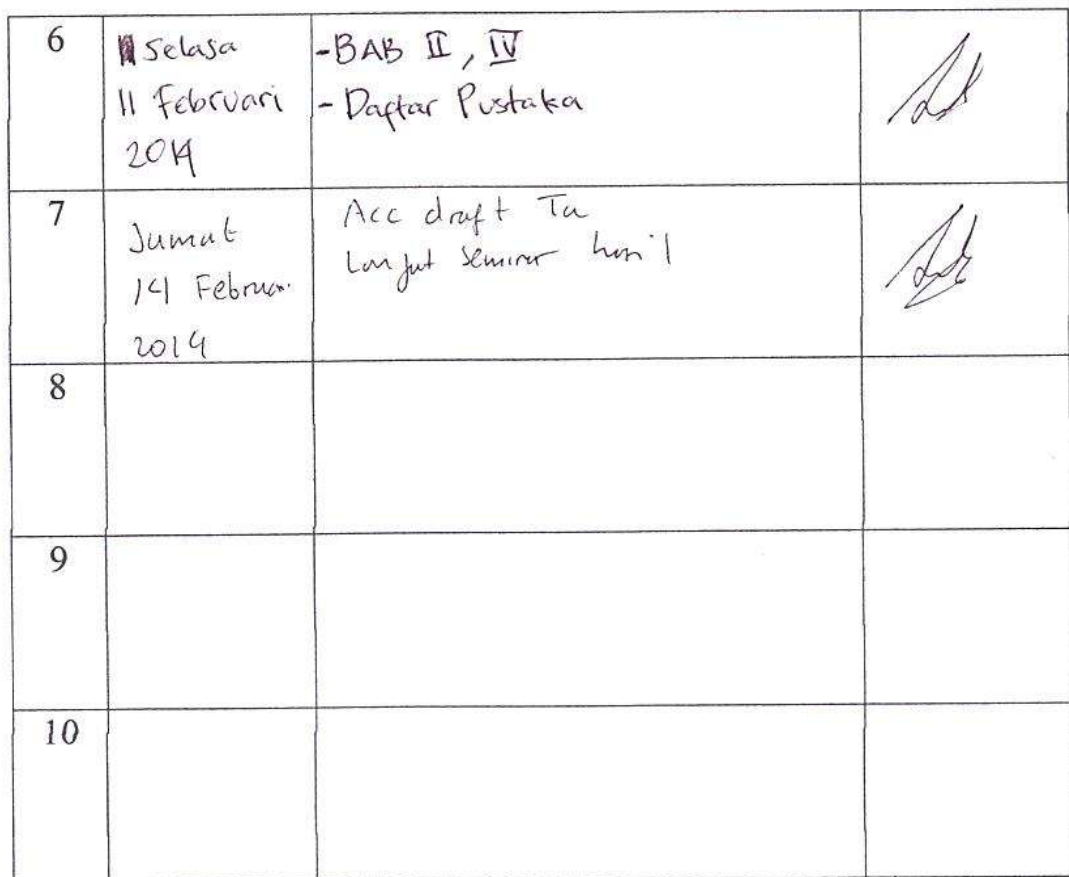 6
Selasa
11 Februari
2014
-BAB II, IV
- Daftar Pustaka
7
Jumat
14 Februari
2014
Acc draft TA
Lanjut seminar hasil
8
9
10